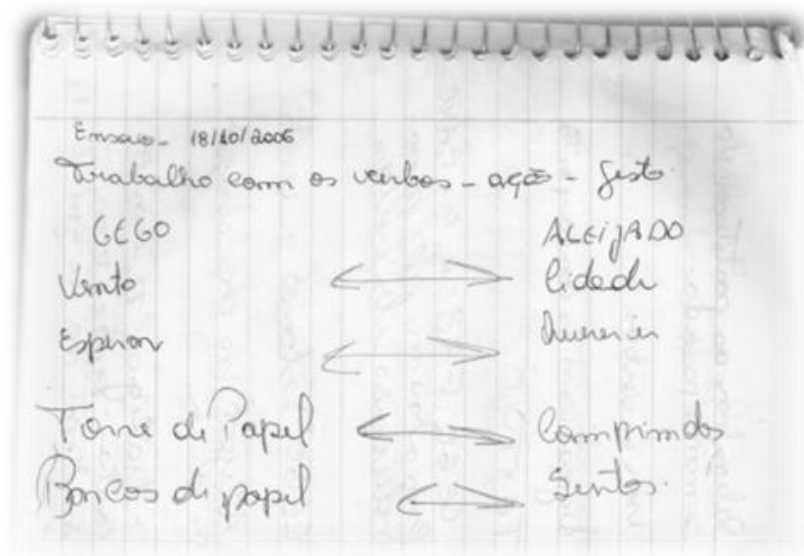 Ensaio - 18/10/2006
Trabalho com os verbos - ação - gesto
CEGO ALEIJADO
Vento Cidade
Esperar
Torre de Papel Comprimidos
Barcos de papel